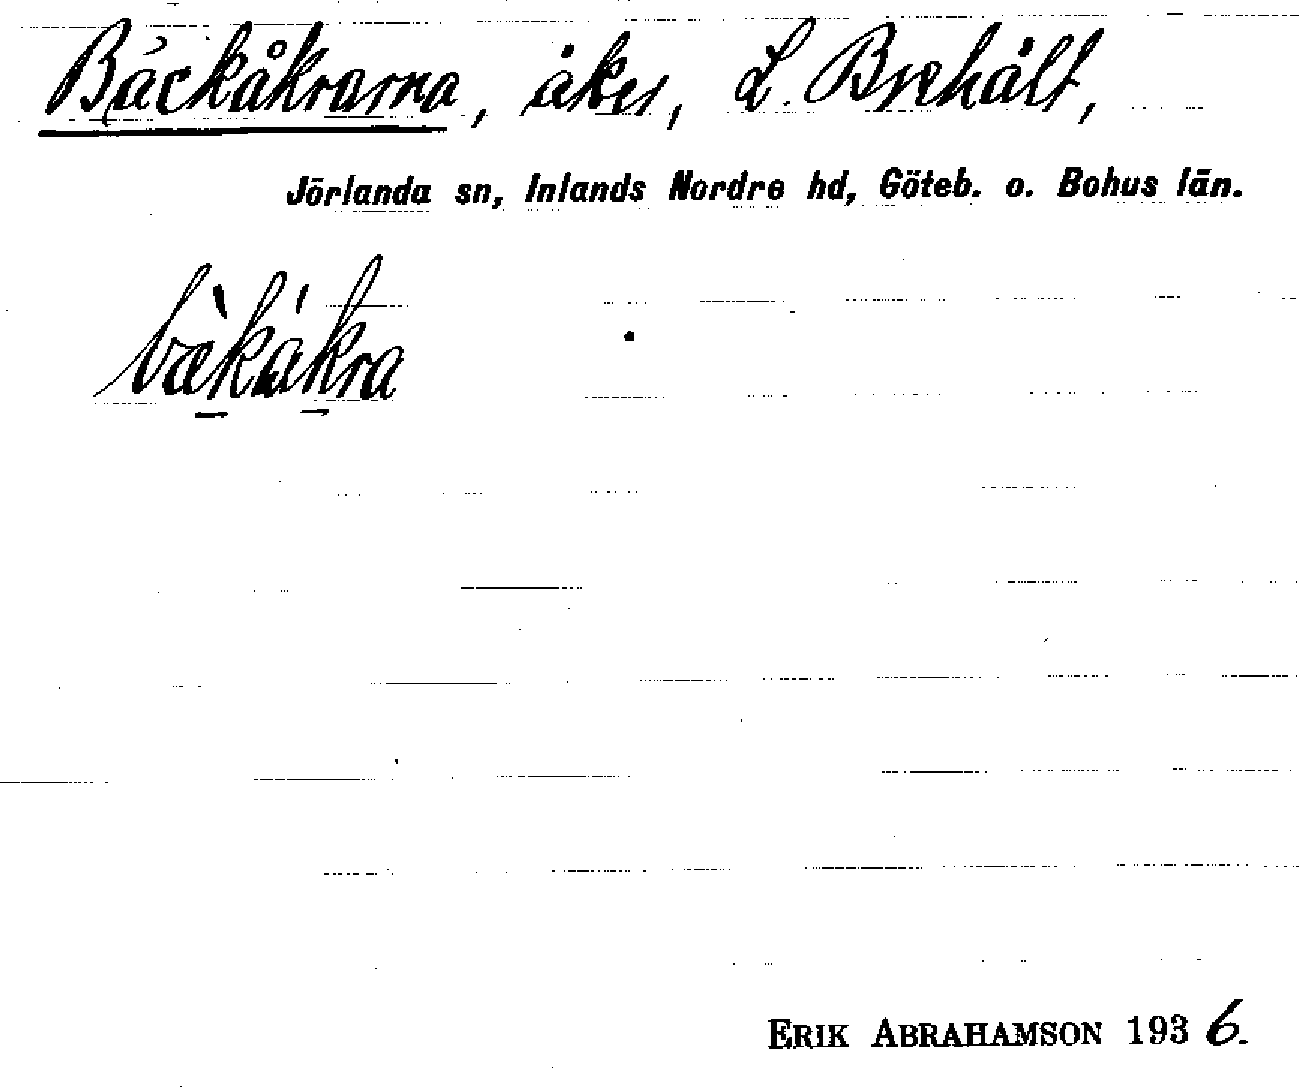 Bäckåkrarna, åker, L. Brehålt,
Jörlanda sn, Inlands Nordre hd, Göteb. o. Bohus län.
bæ̀kákra
ERIK ABRAHAMSON 1936.